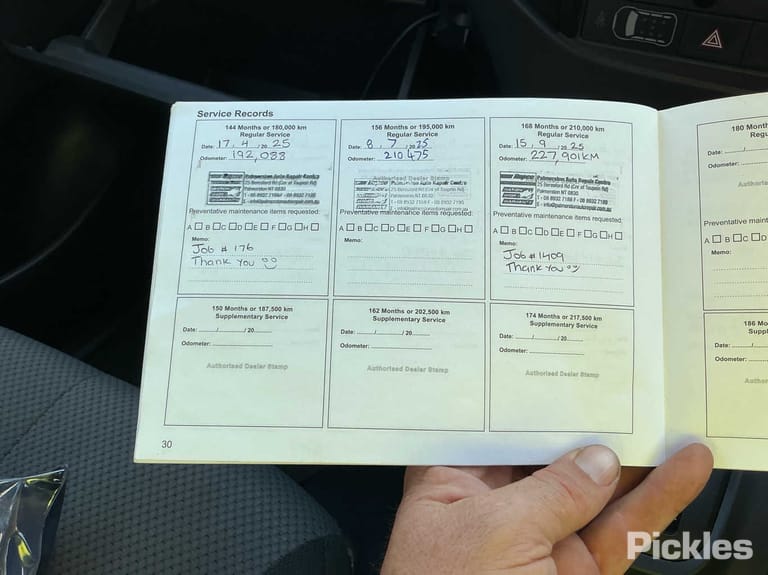 Service Records
144 Months or 180,000 km
Regular Service
Date: 17 . 4 ./ 20 25
Odometer: 192,088
Palmerston Auto Repair Centre
25 Beresford Rd (Cnr of Toupein Rd)
Palmerston NT 0830
Preventative maintenance items requested:
A B C D E F G H
Memo:
Job # 176
Thank You
156 Months or 195,000 km
Regular Service
Date: 8 / 7 / 20 25
Odometer: 210475
Authorised Dealer Stamp
Palmerston Auto Repair Centre
25 Beresford Rd (Cnr of Toupein Rd)
Palmerston NT 0830
Preventative maintenance items requested:
A B C D E F G H
Memo:
168 Months or 210,000 km
Regular Service
Date: 15 . 9 ./ 20 25
Odometer: 227,901KM
Palmerston Auto Repair Centre
25 Beresford Rd (Cnr of Toupein Rd)
Palmerston NT 0830
Preventative maintenance items requested:
A B C D E F G H
Memo:
Job # 1409
Thank You
180 M
Reg
Date:
Odometer:
Authoris
Preventative maint
A B C D
Memo:
150 Months or 187,500 km
Supplementary Service
Date: / / 20
Odometer:
Authorised Dealer Stamp
162 Months or 202,500 km
Supplementary Service
Date: / / 20
Odometer:
Authorised Dealer Stamp
174 Months or 217,500 km
Supplementary Service
Date: / / 20
Odometer:
Authorised Dealer Stamp
186 M
Suppl
Date:
Odometer:
Author
30
Pickles